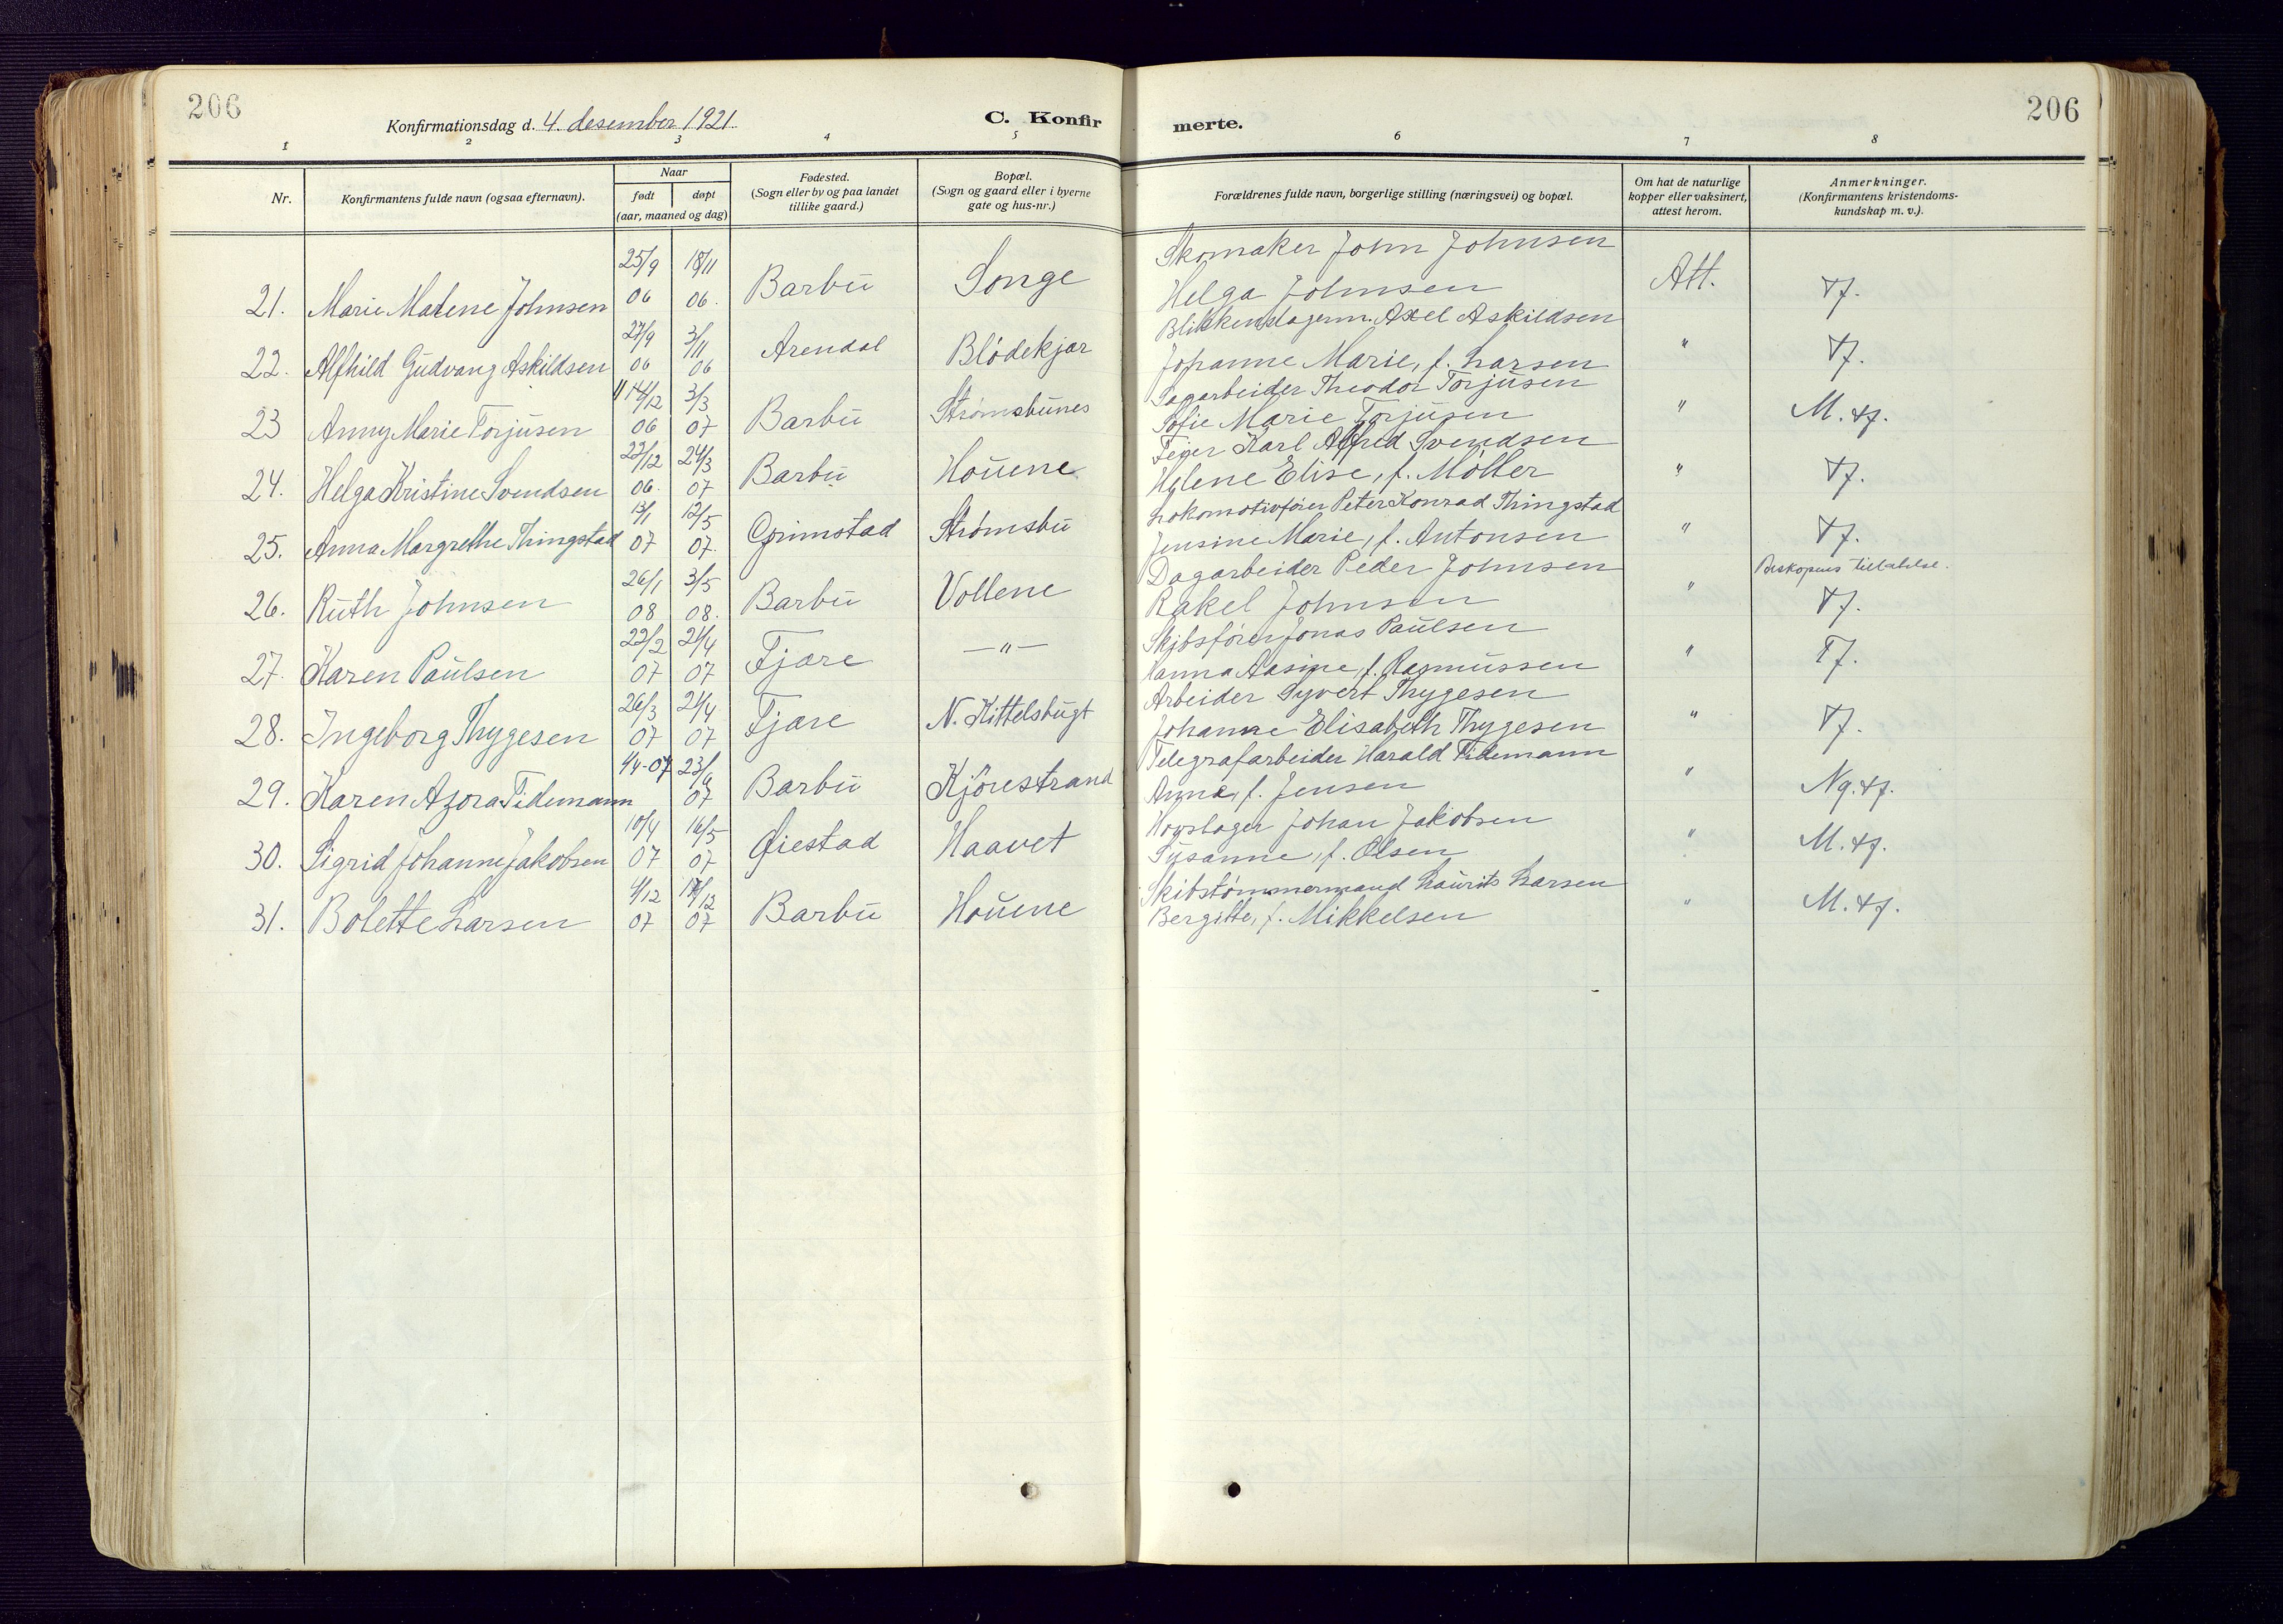 206
Konfirmationsdag d. 4. desember 1921.
C. Konfirmerte.
206
1 2 3 4 5 6 7 8
Nr.
Konfirmantens fulde navn (ogsaa efternavn).
Naar
født døpt
(aar, maaned og dag)
Fødested.
(Sogn eller by og paa landet
tillike gaard.)
Bopæl.
(Sogn og gaard eller i byerne
gate og hus-nr.)
Forældrenes fulde navn, borgerlige stilling (næringsvei) og bopæl.
Om hat de naturlige
kopper eller vaksinert,
attest herom.
Anmerkninger.
(Konfirmantens kristendoms-
kundskap m. v.).
25/9 18/11 Skomaker John Johnsen
21. Marie Malene Johnsen 06 06. Barbu Songe Helga Johnsen Att.
27/9 3/11 Blikkenslagerm. Axel Askildsen
22. Alfhild Gudvang Askildsen 06 06 Arendal Blödekjær Johanne Marie, f. Larsen "
14/12 3/3 Sagarbeider Theodor Torjusen
23 Anny Marie Torjusen 06 07 Barbu Strømsbunes Sofie Marie Torjusen " M.
22/12 24/3 Feier Karl Alfred Svendsen
24. Helga Kristine Svendsen 06. 07 Barbu Houene Helene Elise, f. Möller "
13/1 12/5 Lokomotivfører Peter Konrad Thingstad
25. Anna Margrethe Thingstad 07 07. Grimstad Strømsbu Jensine Marie, f. Antonsen "
26/1 3/5 Dagarbeider Peder Johnsen Biskopens tillatelse.
26. Ruth Johnsen 08 08. Barbu Vollene Rakel Johnsen "
22/2 21/4 Skibsfören Jonas Paulsen
27. Karen Paulsen 07 07 Fjære —"— Hanna Aasine, f. Rasmussen " Tf.
26/3 21/4 Arbeider Syvert Thygesen
28. Ingeborg Thygesen 07 07 Fjære N. Kittelsbugt Johanne Elisabeth Thygesen "
1/4-07 23/6 Telegrafarbeider Harald Tidemann
29. Karen Azora Tidemann 07 Barbu Kjörestrand Anna, f. Jensen " Ng.
10/4 16/5 Hovslager Johan Jakobsen
30. Sigrid Johanne Jakobsen 07 07 Øiestad Haavet Susanne, f. Olsen " M.
4/12 17/12 Skibstömmermand Laurits Larsen
31. Bolette Larsen 07 07 Barbu Houene Bergitte, f. Mikkelsen " M.